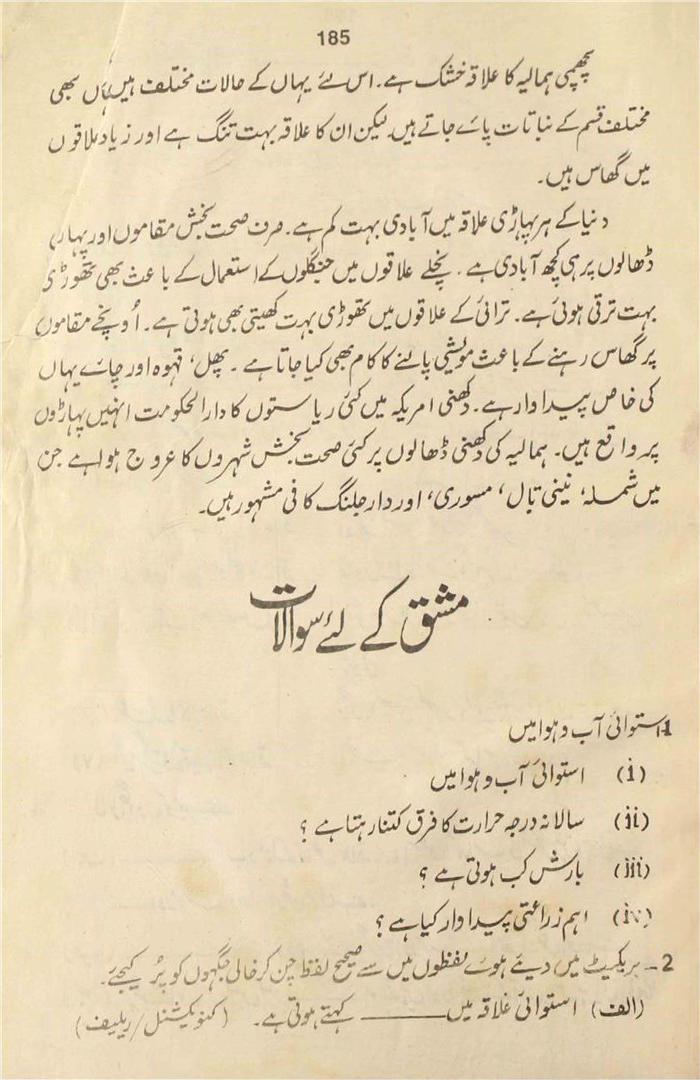 185
پچھمی ہمالیہ کا علاقہ خشک ہے۔ اس لئے یہاں کے حالات مختلف ہیں یہاں بھی
مختلف قسم کے نباتات پائے جاتے ہیں لیکن ان کا علاقہ بہت تنگ ہے اور زیادہ علاقوں
میں گھاس ہیں۔
دنیا کے ہر پہاڑی علاقہ میں آبادی بہت کم ہے۔ صرف صحت بخش مقاموں اور پہاڑی
ڈھالوں پر ہی کچھ آبادی ہے۔ نچلے علاقوں میں جنگلوں کے استعمال کے باعث بھی تھوڑی
بہت ترقی ہوئی ہے۔ ترائی کے علاقوں میں تھوڑی بہت کھیتی بھی ہوتی ہے۔ اُونچے مقاموں
پر گھاس رہنے کے باعث مویشی پالنے کا کام بھی کیا جاتا ہے۔ پھل، قہوہ اور چائے یہاں
کی خاص پیداوار ہے۔ دکھنی امریکہ میں کئی ریاستوں کا دارالحکومت انہیں پہاڑوں
پر واقع ہیں۔ ہمالیہ کی دکھنی ڈھالوں پر کئی صحت بخش شہروں کا عروج ہوا ہے جن
میں شملہ، نینی تال، مسوری، اور دارجلنگ کافی مشہور ہیں۔
مشق کے لئے سوالات
1۔ استوائی آب و ہوا میں
(i) استوائی آب و ہوا میں
(ii) سالانہ درجہ حرارت کا فرق کتنا رہتا ہے؟
(iii) بارش کب ہوتی ہے؟
(iv) اہم زراعتی پیداوار کیا ہے؟
2۔ بریکیٹ میں دیئے ہوئے لفظوں میں سے صحیح لفظ چن کر خالی جگہوں کو پُر کیجئے۔
(الف) استوائی علاقہ میں ______ کہتے ہوتی ہے۔ (کنویکشنل/ریلیف)